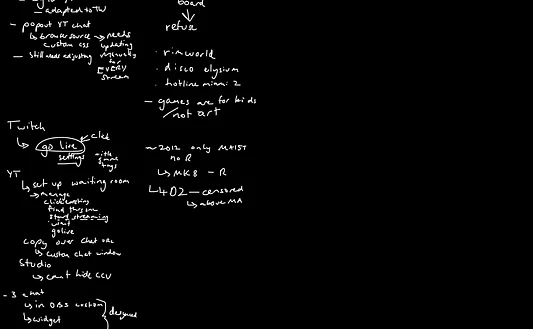 adapted to TW
- popout YT chat
↳ browser source → needs
custom css updating
- still needs adjusting manually
for
EVERY
stream
Twitch
↳ go live
click
settings
with
same
tags
YT
↳ set up waiting room
→ manage
click existing
find this one
start streaming
wait
go live
copy over chat URL
↳ custom chat window
Studio
↳ can't hide CCV
- 3 chat
↳ in OBS custom
↳ widget
designed
board
↓
refuse
· rimworld
· disco elysium
· hotline miami 2
- games are for kids
/not art
~ 2012 only MA15+
no R
↳ MK8 - R
↳ L4D2 - censored
↳ above MA